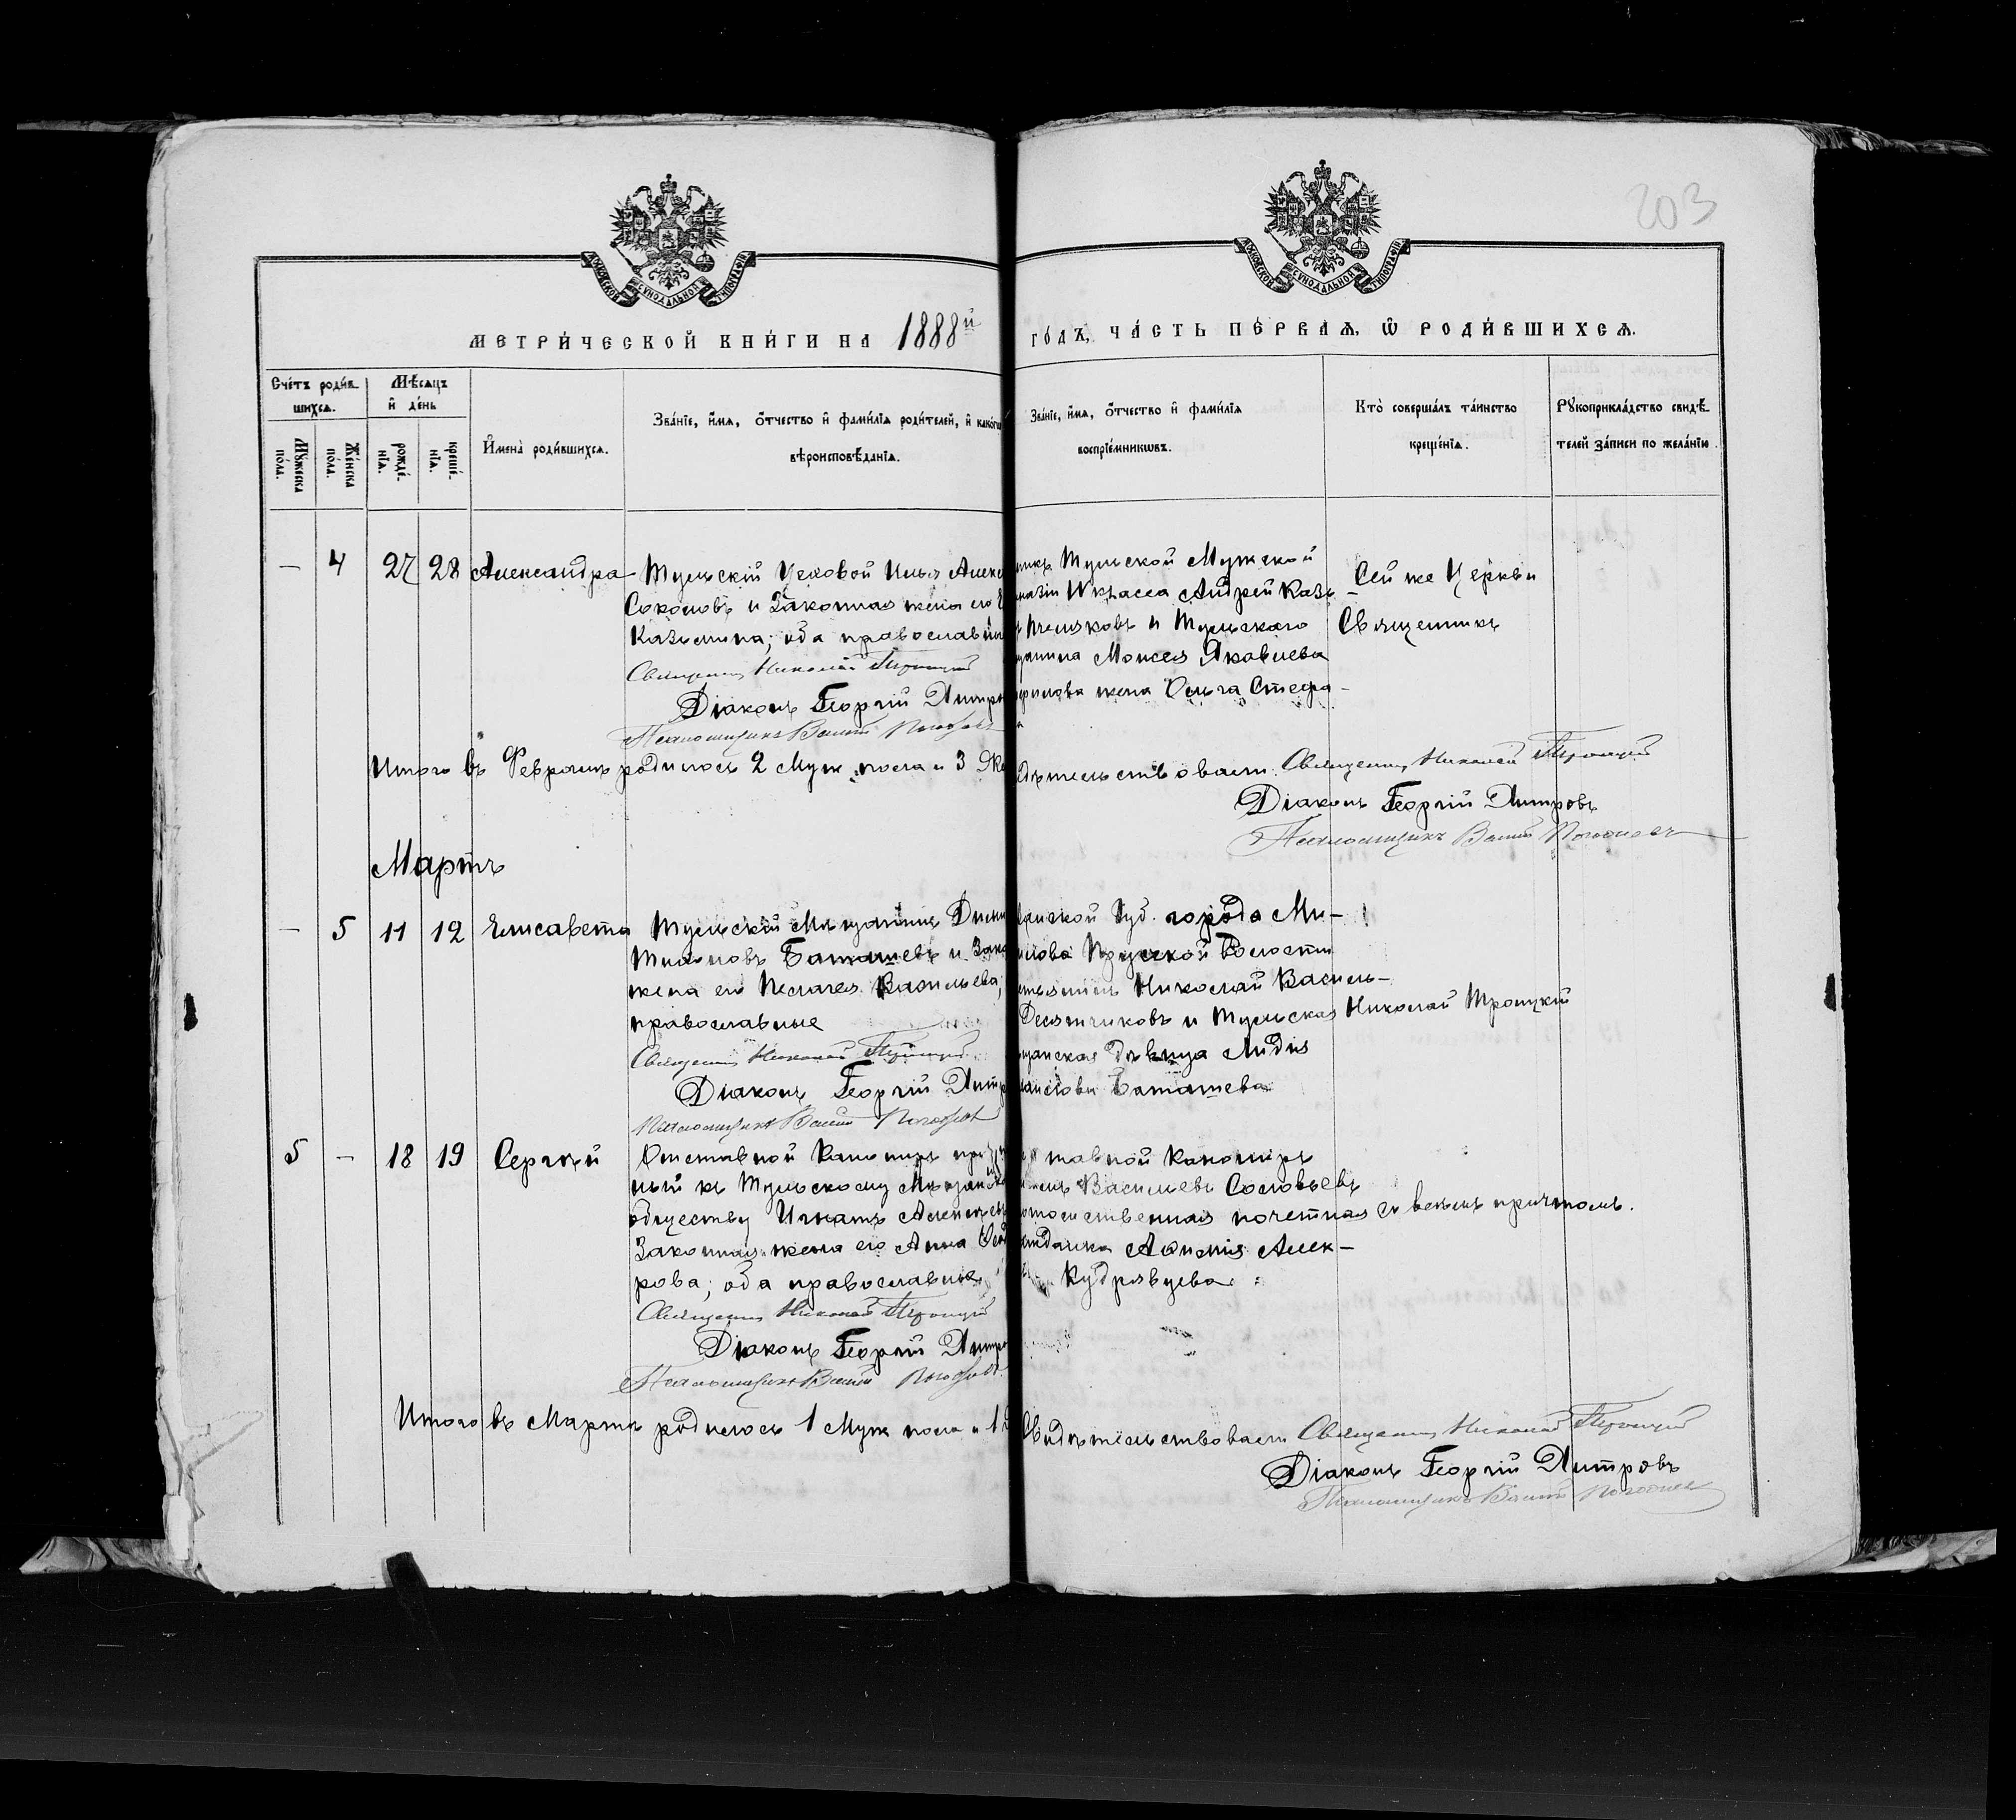 203
МЕТРИ́ЧЕСКОЙ КНИ́ГИ НА 1888й
ГО́ДЪ, ЧА́СТЬ ПЕ́РВАѦ, Ѡ҆ РОДИ́ВШИХСѦ.
Сче́тъ роди́в-
шихсѧ.
Мꙋ́жеска по́ла.
Же́нска по́ла.
Мѣ́сѧцъ
и҆ де́нь
рожде́-нїѧ.
креще́-нїѧ.
И҆мена̀ роди́вшихсѧ.
Зва́нїе, и҆́мѧ, ѻ҆́тчество и҆ фами́лїѧ роди́телей, и҆ како́гѡ
вѣроисповѣ́данїѧ.
Зва́нїе, и҆́мѧ, ѻ҆́тчество и҆ фами́лїѧ
воспрїе́мникѡвъ.
Кто̀ соверша́лъ та́инство
креще́нїѧ.
Рꙋкоприкла́дство свидѣ́-
телей за́писи по жела́нїю.
— 4 27 28 Александра
Тульскій Цеховой Илья Алекс
Соколовъ и Законная жена его
Казьмина; оба православн
Священникъ Николай Троицкій
Діаконъ Георгій Дмитр
Псаломщикъ
никъ Тульской Мужской
назіи IV класса Андрей Казь-
Пчельковъ и Тульскаго
щанина Моисея Яковлева
жена Ольга Стефа-
Сей же Церкви
Священникъ
Итого въ Февралѣ родилось 2 муж. пола и 3 Же
дѣтельствовали. Священникъ Николай Троицкій
Діаконъ Георгій Дмитровъ
Псаломщикъ
Мартъ
— 5 11 12 Елисавета
Тульскій Мѣщанинъ Дими
Тихоновъ Баташевъ и Зако
жена его Пелагея Васильева;
православные
Священникъ Николай Троицкій
Діаконъ Георгій Дмитр
Псаломщикъ
занской Губ. города Ми-
лова Прудской Волости
Николай Василь-
Десятниковъ и Тульская
щанская дѣвица Лидія
Баташева
Николай Троицкій
5 — 18 19 Сергѣй
Отставной Канониръ при
ный къ Тульскому Мѣщанск
обществу Игнатъ Алексѣевъ
Законная жена его Анна Ѳео
рова; оба православные
Священникъ Николай Троицкій
Діаконъ Георгій Дмитро
Псаломщикъ
тавной Канониръ
Васильевъ Соловьевъ
отомственная почетная
жданка Аѳанасія Алек-
Кудрявцева
съ всѣмъ причтомъ.
Итого въ Мартѣ родилось 1 Муж. пола и 1
Свидѣтельствовали Священникъ Николай Троицкій
Діаконъ Георгій Дмитровъ
Псаломщикъ